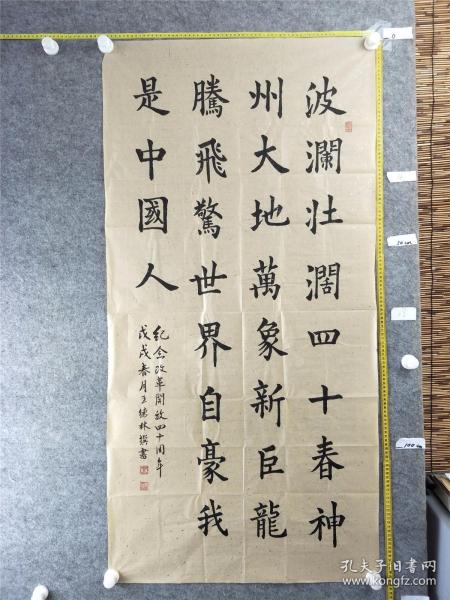 波瀾壯闊四十春神
州大地萬象新巨龍
騰飛驚世界自豪我
是中國人
紀念改革開放四十周年
戊戌春月王德林撰書
0
50cm
100cm
孔夫子旧书网
www.kongfz.com